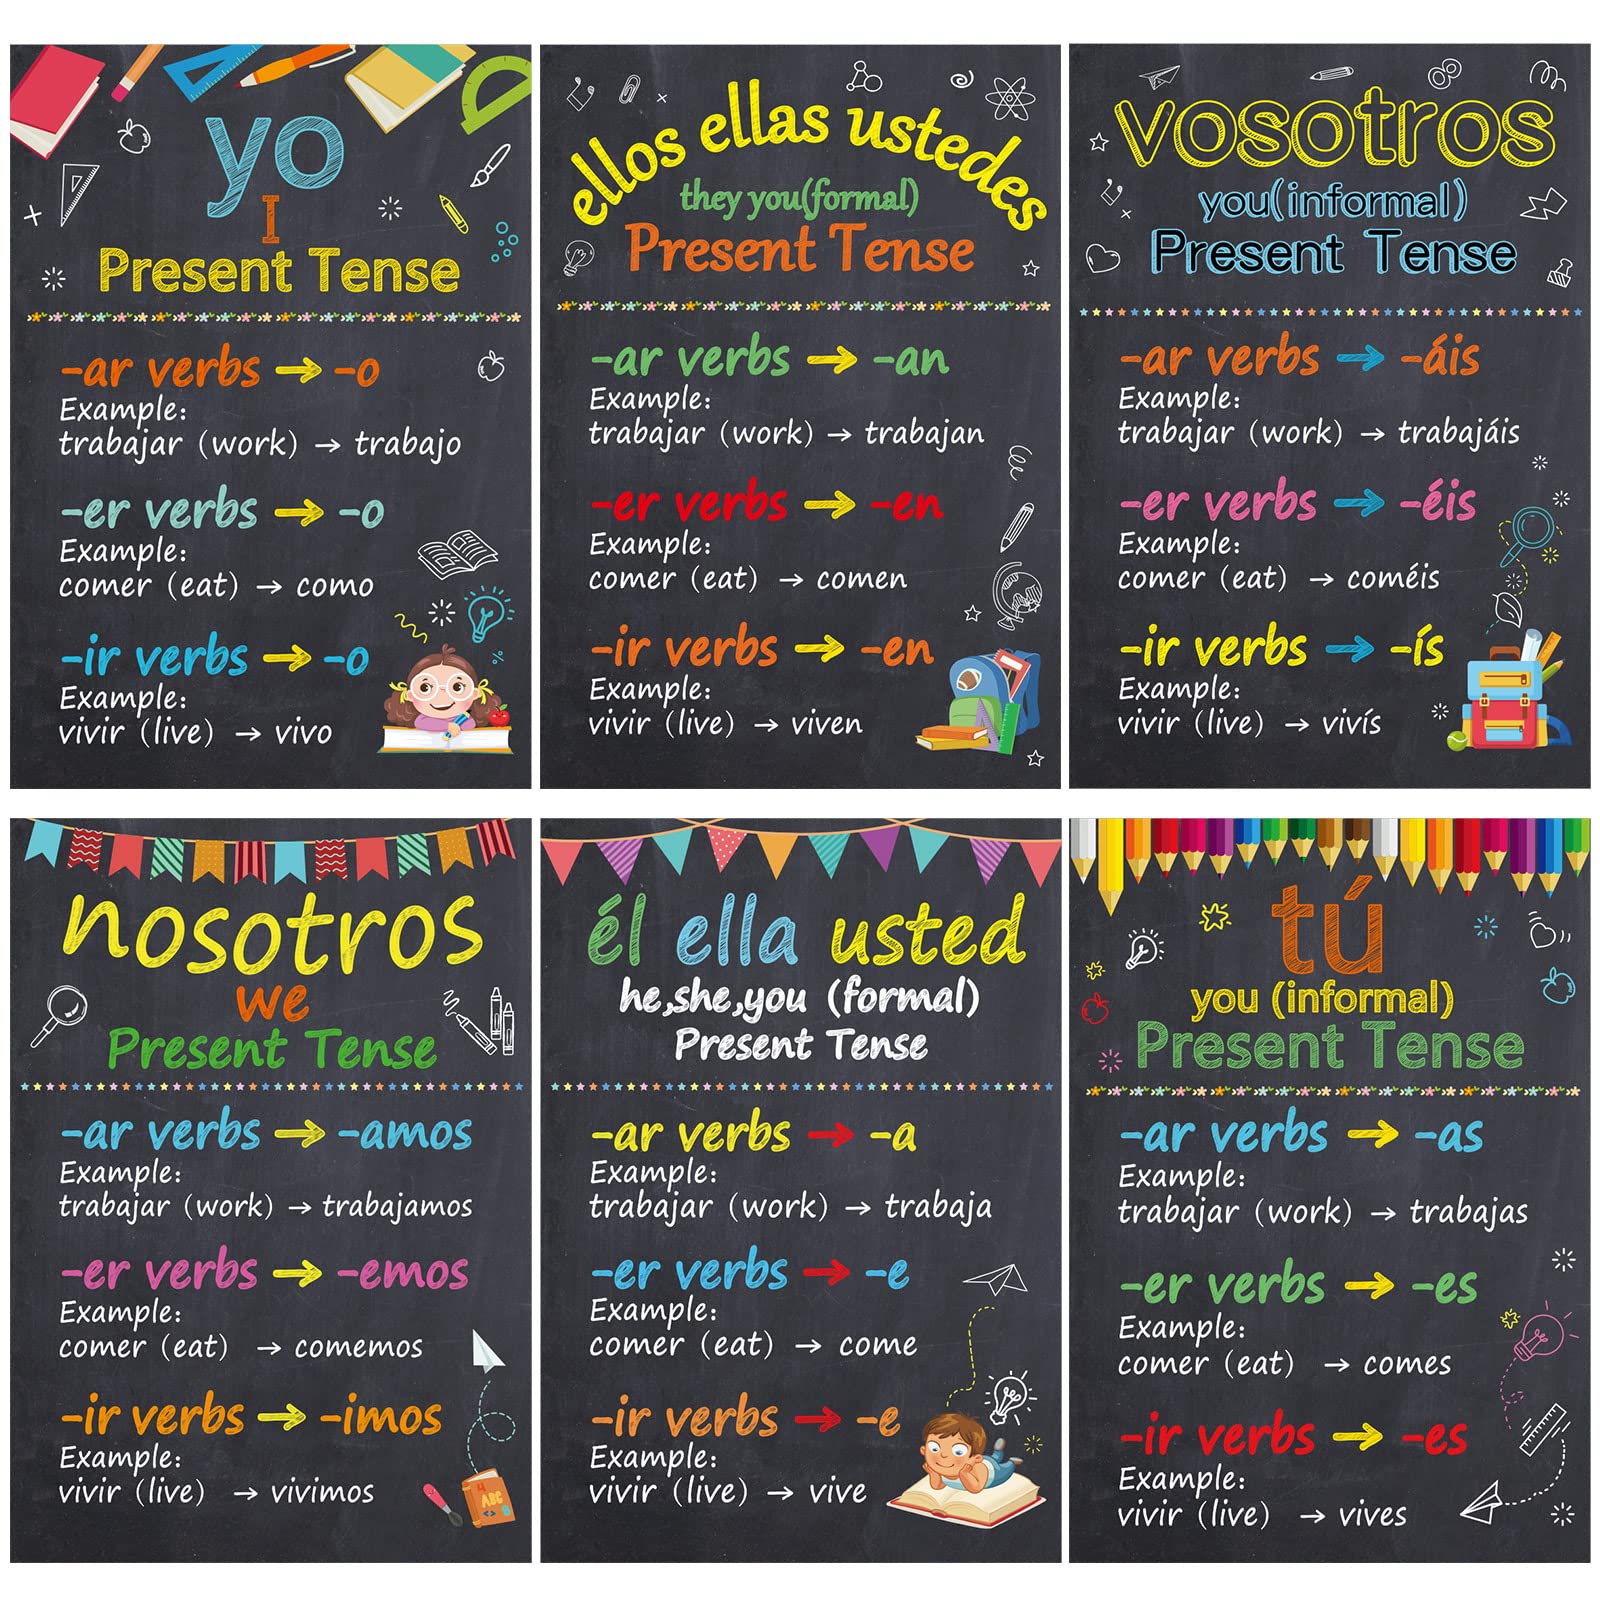 yo
I
Present Tense
-ar verbs → -o
Example:
trabajar (work) → trabajo
-er verbs → -o
Example:
comer (eat) → como
-ir verbs → -o
Example:
vivir (live) → vivo
ellos ellas ustedes
they you(formal)
Present Tense
-ar verbs → -an
Example:
trabajar (work) → trabajan
-er verbs → -en
Example:
comer (eat) → comen
-ir verbs → -en
Example:
vivir (live) → viven
vosotros
you(informal)
Present Tense
-ar verbs → -áis
Example:
trabajar (work) → trabajáis
-er verbs → -éis
Example:
comer (eat) → coméis
-ir verbs → -ís
Example:
vivir (live) → vivís
nosotros
we
Present Tense
-ar verbs → -amos
Example:
trabajar (work) → trabajamos
-er verbs → -emos
Example:
comer (eat) → comemos
-ir verbs → -imos
Example:
vivir (live) → vivimos
ABC
él ella usted
he,she,you (formal)
Present Tense
-ar verbs → -a
Example:
trabajar (work) → trabaja
-er verbs → -e
Example:
comer (eat) → come
-ir verbs → -e
Example:
vivir (live) → vive
tú
you (informal)
Present Tense
-ar verbs → -as
Example:
trabajar (work) → trabajas
-er verbs → -es
Example:
comer (eat) → comes
-ir verbs → -es
Example:
vivir (live) → vives